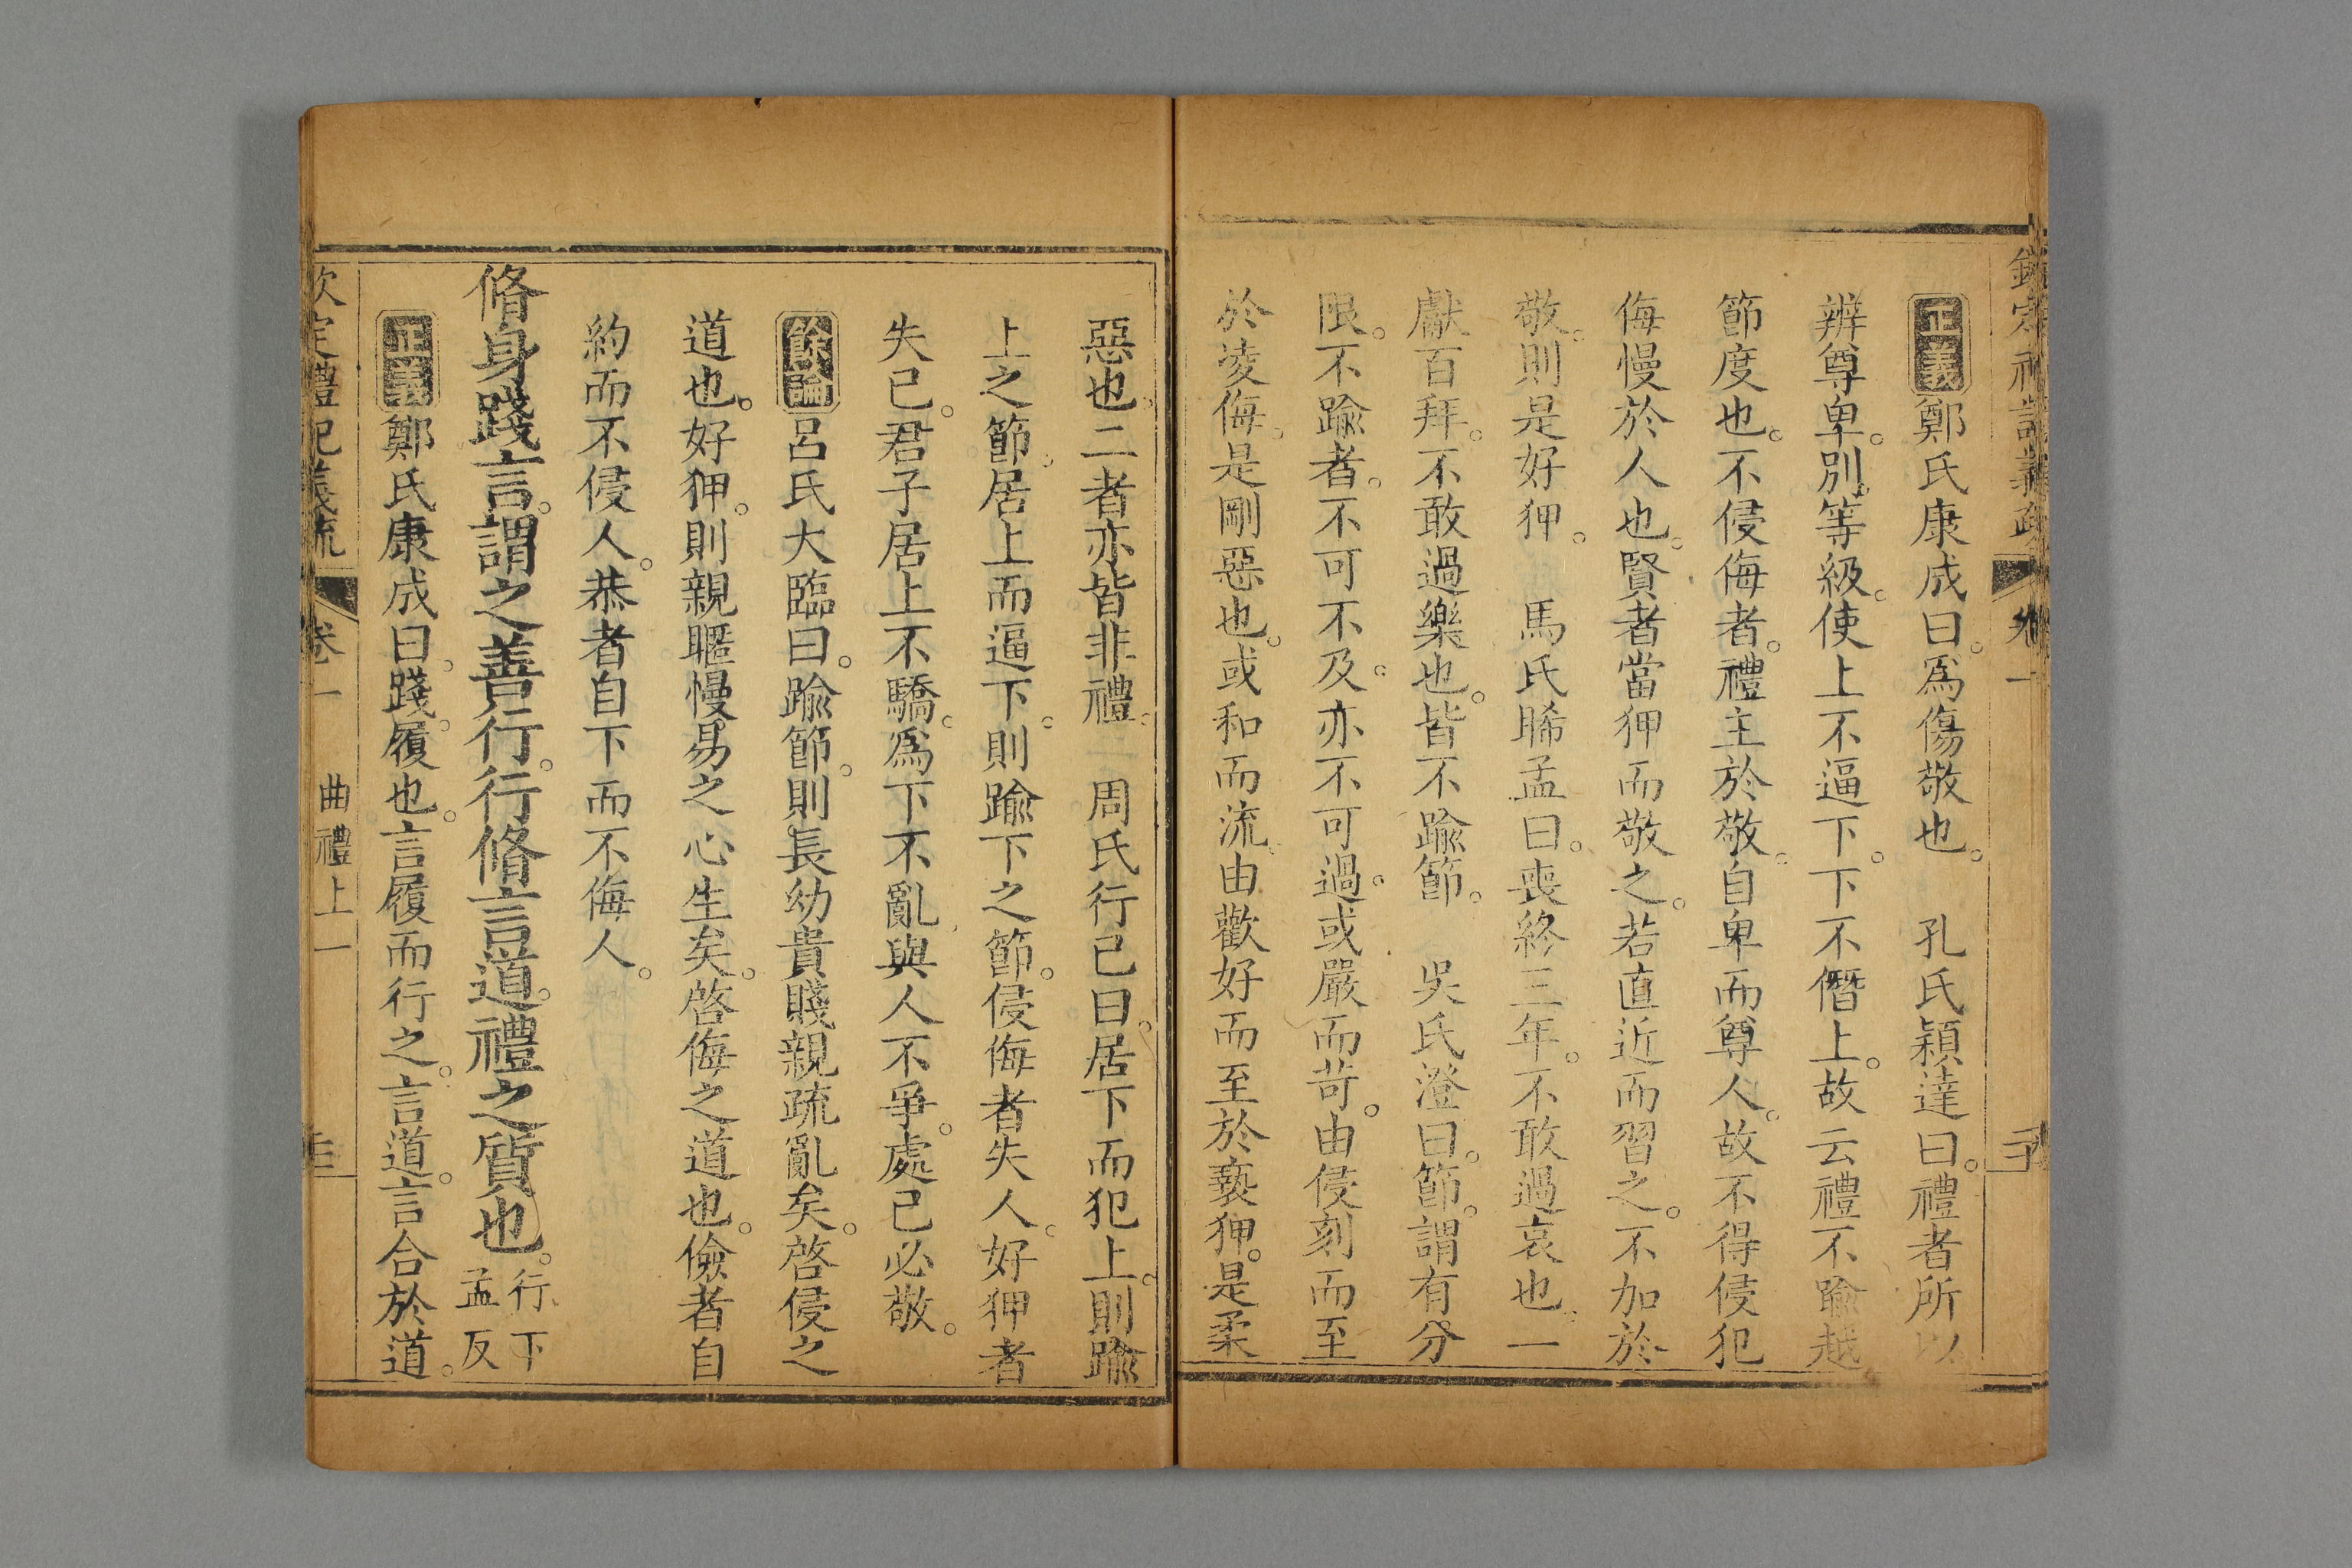 欽定禮記義疏 卷一
正義鄭氏康成曰。爲傷敬也。 孔氏穎達曰。禮者所以
辨尊卑。別等級。使上不逼下。下不僭上。故云禮不踰越
節度也。不侵侮者。禮主於敬。自卑而尊人。故不得侵犯
侮慢於人也。賢者當狎而敬之。若直近而習之。不加於
敬。則是好狎。 馬氏晞孟曰。喪終三年。不敢過哀也。一
獻百拜。不敢過樂也。皆不踰節。 吳氏澄曰。節。謂有分
限。不踰者。不可不及。亦不可過。或嚴而苛。由侵刻而至
於凌侮。是剛惡也。或和而流。由歡好而至於褻狎。是柔
惡也。二者亦皆非禮。 周氏行己曰。居下而犯上。則踰
上之節。居上而逼下。則踰下之節。侵侮者失人。好狎者
失己。君子居上不驕。爲下不亂。與人不爭。處己必敬。
餘論呂氏大臨曰。踰節。則長幼貴賤親疏亂矣。啓侵之
道也。好狎。則親暱慢易之心生矣。啓侮之道也。儉者自
約而不侵人。恭者自下而不侮人。
脩身踐言。謂之善行。行脩言道。禮之質也。行下孟反
正義鄭氏康成曰。踐。履也。言履而行之。言道。言合於道。
欽定禮記義疏 卷一 曲禮上一